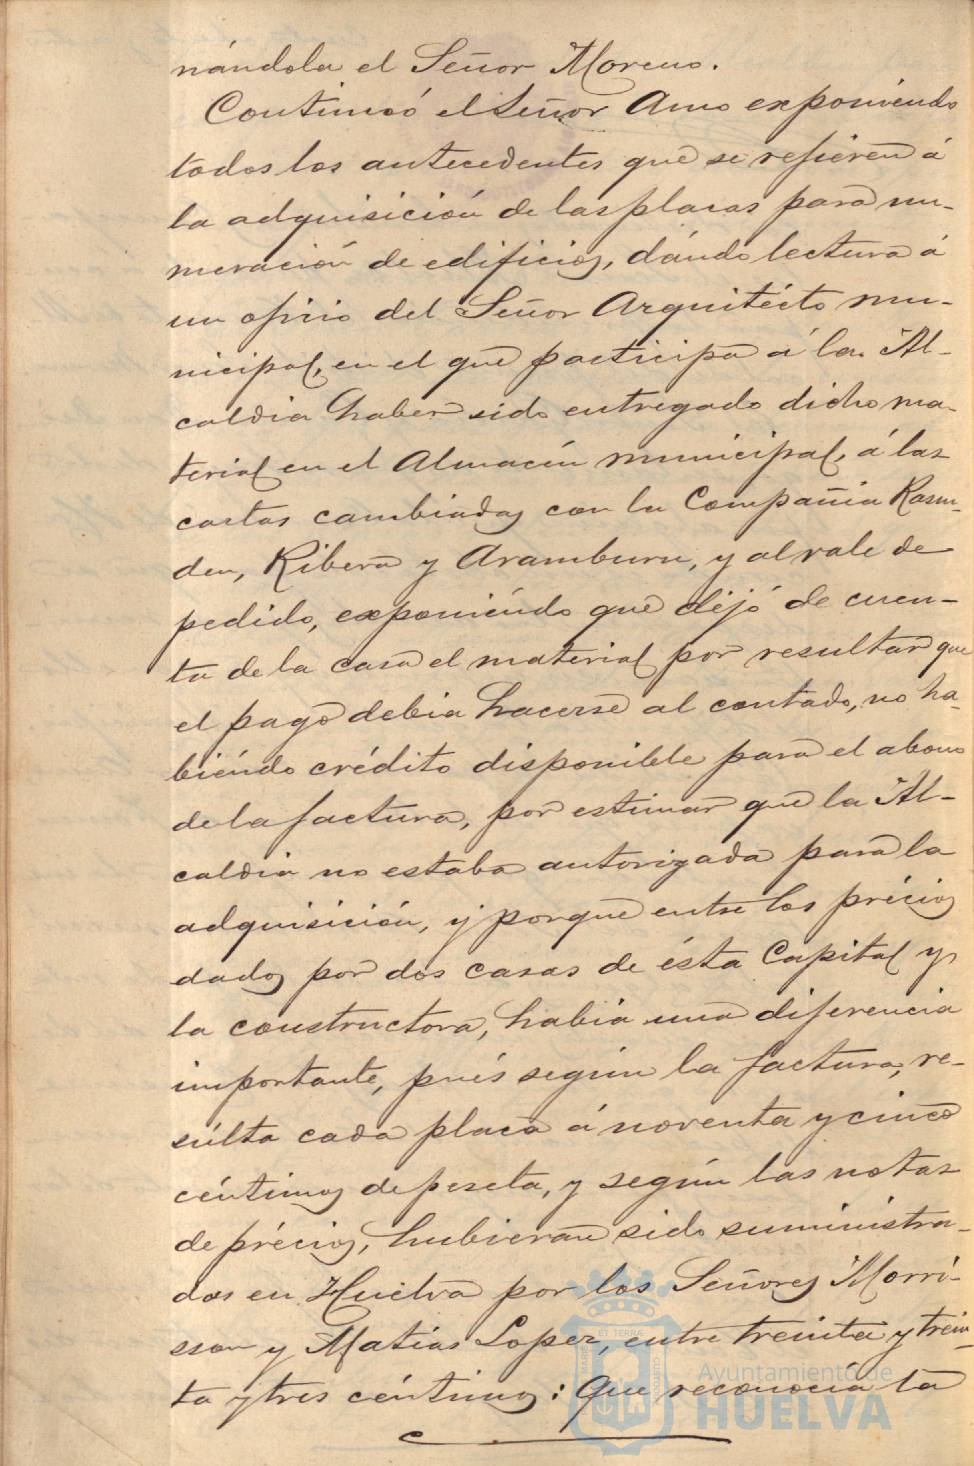 nándola el Señor Moreno.
Continuó el Señor Amo exponiendo
todos los antecedentes que se refieren á
la adquisición de las placas para nu-
meración de edificios, dándo lectura á
un oficio del Señor Arquitécto mu-
nicipal, en el que participa á la Al-
caldia haber sido entregado dicho ma-
terial en el Almacén municipal, á las
cartas cambiadas con la Compañia Rasm-
den, Ribera y Aramburu, y al vale de
pedido, exponiéndo que dejó de cuen-
ta de la casa el material por resultar que
el pago debia hacerse al contado, no ha-
biéndo crédito disponible para el abono
de la factura, por estimar que la Al-
caldia no estaba autorizada para la
adquisición, y porque entre los précios
dados por dos casas de ésta Capital y
la constructora, habia una diferencia
importante, pués según la factura, re-
súlta cada placa á noventa y cinco
céntimos de peseta, y según las notas
de précios, hubieran sido suministra-
das en Huelva por los Señores Morri-
sson y Matias Lopez, entre treinta y trein-
ta y tres céntimos: Que reconocia la
Ayuntamiento de
HUELVA